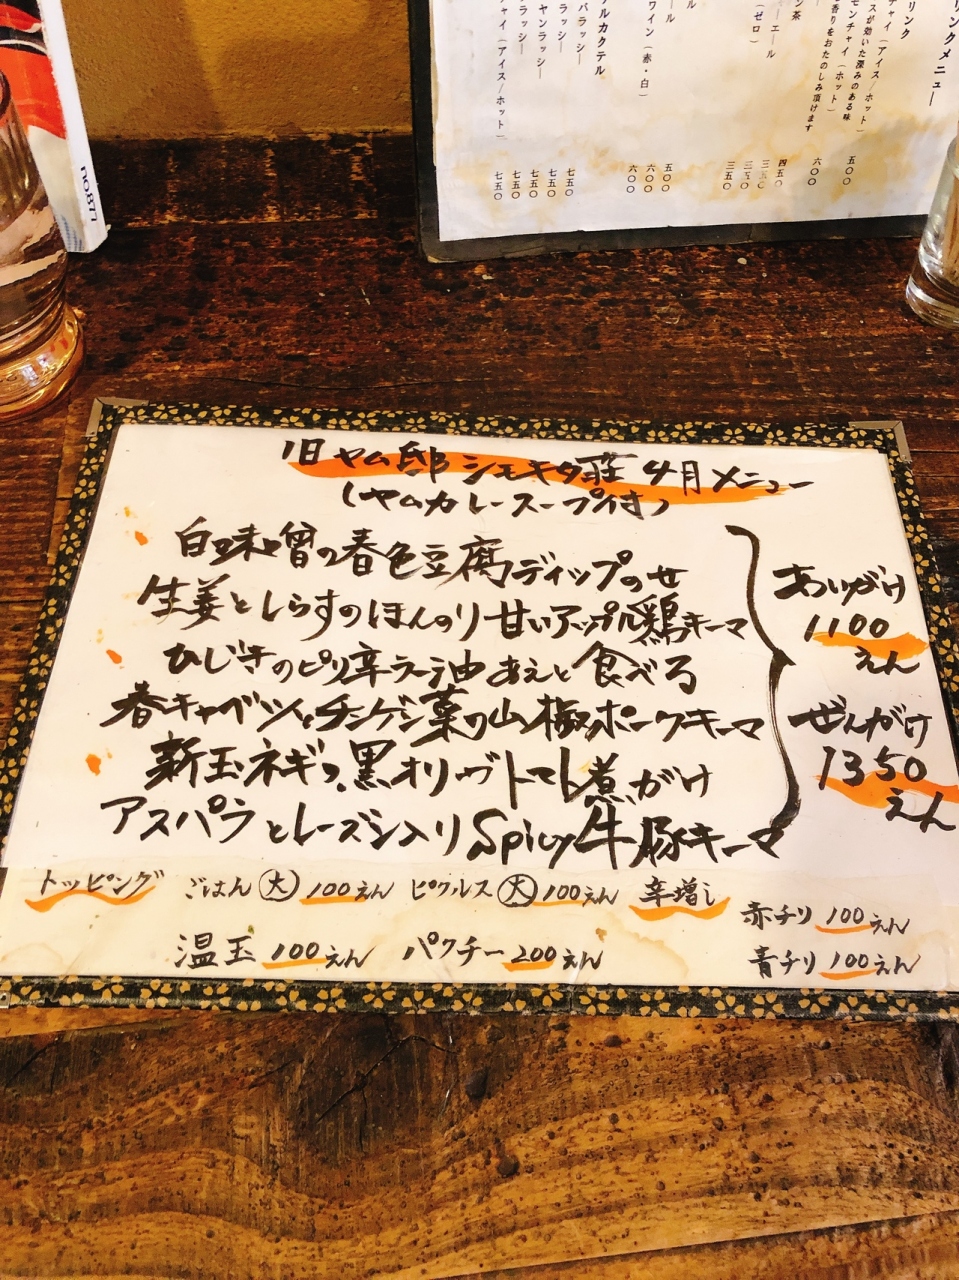 no.877
リンクメニュー
リンク
チャイ（アイス／ホット） 五〇〇
スが効いた深みのある味
モンチャイ（ホット） 六〇〇
香りをおたのしみ頂けます
ン茶
エール
（ゼロ）
ール
ワイン（赤・白）
ルカクテル
バラッシー
ラッシー
ヤンラッシー
ラッシー
チャイ（アイス／ホット）
四五〇
三五〇
三五〇
三五〇
五〇〇
六〇〇
六〇〇
七五〇
七五〇
七五〇
七五〇
七五〇
旧ヤム邸シモキタ荘 4月メニュー
(ヤムカレースープ付)
白味噌の春色豆腐ディップのせ
生姜としらすのほんのり甘いアップル鶏キーマ
ひじきのピリ辛ラー油あえと食べる
春キャベツとチンゲン菜の山椒ポークキーマ
新玉ネギの黒オリーヴトマト煮がけ
アスパラとレーズン入りSpicy牛豚キーマ
あいがけ
1100
えん
ぜんがけ
1350
えん
トッピング ごはん 大 100えん ピクルス 大 100えん 辛増し 赤チリ 100えん
温玉 100えん パクチー 200えん 青チリ 100えん